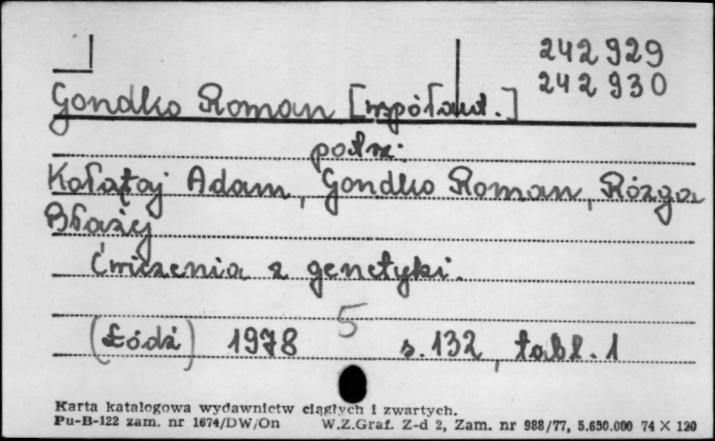 242 929
242 930
Gondko Roman [współaut.]
patrz:
Kołątaj Adam, Gondko Roman, Rózga
Błażej
Ćwiczenia z genetyki.
5
(Łódź) 1978 s. 132, tabl. 1
Karta katalogowa wydawnictw ciągłych i zwartych.
Pu-B-122 zam. nr 1674/DW/On W.Z.Graf. Z-d 2, Zam. nr 988/77, 5.650.000 74 × 120